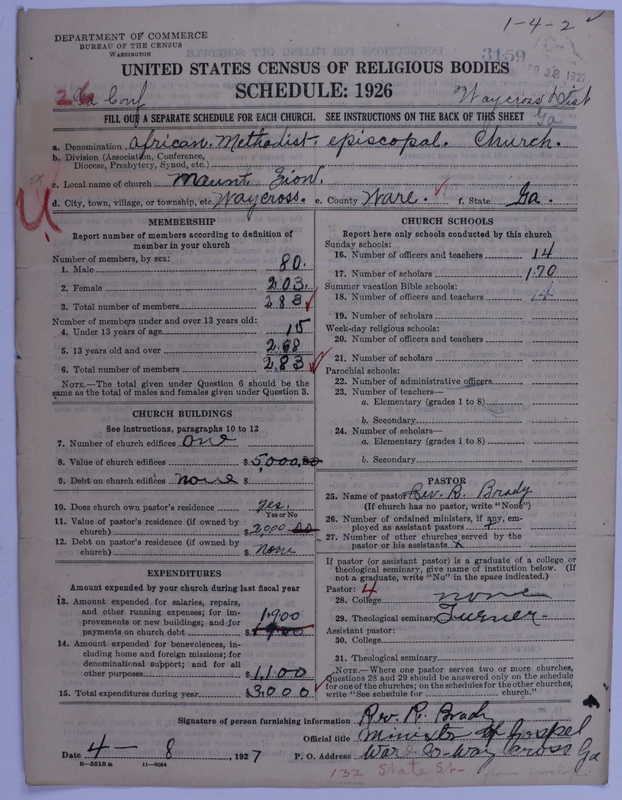 1-4-2 ✓
DEPARTMENT OF COMMERCE
BUREAU OF THE CENSUS
WASHINGTON
3159
UNITED STATES CENSUS OF RELIGIOUS BODIES
SCHEDULE: 1926
26 Ga Conf
Waycross Dist
Ga
FILL OUT A SEPARATE SCHEDULE FOR EACH CHURCH. SEE INSTRUCTIONS ON THE BACK OF THIS SHEET
a. Denomination African Methodist episcopal Church.
b. Division (Association, Conference, Diocese, Presbytery, Synod, etc.)
c. Local name of church Mount Zion.
d. City, town, village, or township, etc. Waycross. e. County Ware. f. State Ga.
MEMBERSHIP
Report number of members according to definition of member in your church
Number of members, by sex:
1. Male 80.
2. Female 203.
3. Total number of members 283
Number of members under and over 13 years old:
4. Under 13 years of age 15
5. 13 years old and over 268
6. Total number of members 283
NOTE.—The total given under Question 6 should be the same as the total of males and females given under Question 3.
CHURCH BUILDINGS
See instructions, paragraphs 10 to 12
7. Number of church edifices one
8. Value of church edifices $5,000,00
9. Debt on church edifices none $
10. Does church own pastor's residence yes,
Yes or No
11. Value of pastor's residence (if owned by church) $2,000 00
12. Debt on pastor's residence (if owned by church) $ none
EXPENDITURES
Amount expended by your church during last fiscal year
13. Amount expended for salaries, repairs, and other running expenses; for improvements or new buildings; and for payments on church debt 1,900 $
14. Amount expended for benevolences, including home and foreign missions; for denominational support; and for all other purposes $1,100
15. Total expenditures during year $3,000
CHURCH SCHOOLS
Report here only schools conducted by this church
Sunday schools:
16. Number of officers and teachers 14
17. Number of scholars 170
Summer vacation Bible schools:
18. Number of officers and teachers 14
19. Number of scholars
Week-day religious schools:
20. Number of officers and teachers
21. Number of scholars
Parochial schools:
22. Number of administrative officers
23. Number of teachers—
a. Elementary (grades 1 to 8)
b. Secondary
24. Number of scholars—
a. Elementary (grades 1 to 8)
b. Secondary
PASTOR
25. Name of pastor Rev. R. Brady
(If church has no pastor, write "None")
26. Number of ordained ministers, if any, employed as assistant pastors
27. Number of other churches served by the pastor or his assistants x
If pastor (or assistant pastor) is a graduate of a college or theological seminary, give name of institution below. (If not a graduate, write "No" in the space indicated.)
Pastor: 4
28. College none
29. Theological seminary Turner
Assistant pastor:
30. College
31. Theological seminary
NOTE.—Where one pastor serves two or more churches, Questions 28 and 29 should be answered only on the schedule for one of the churches; on the schedules for the other churches, write "See schedule for church."
Signature of person furnishing information Rev. R. Brady
Official title Minister of Gospel
Date 4— 8, 1927 P. O. Address Way Cross Ga
8—5518a 11—9094
132 State St